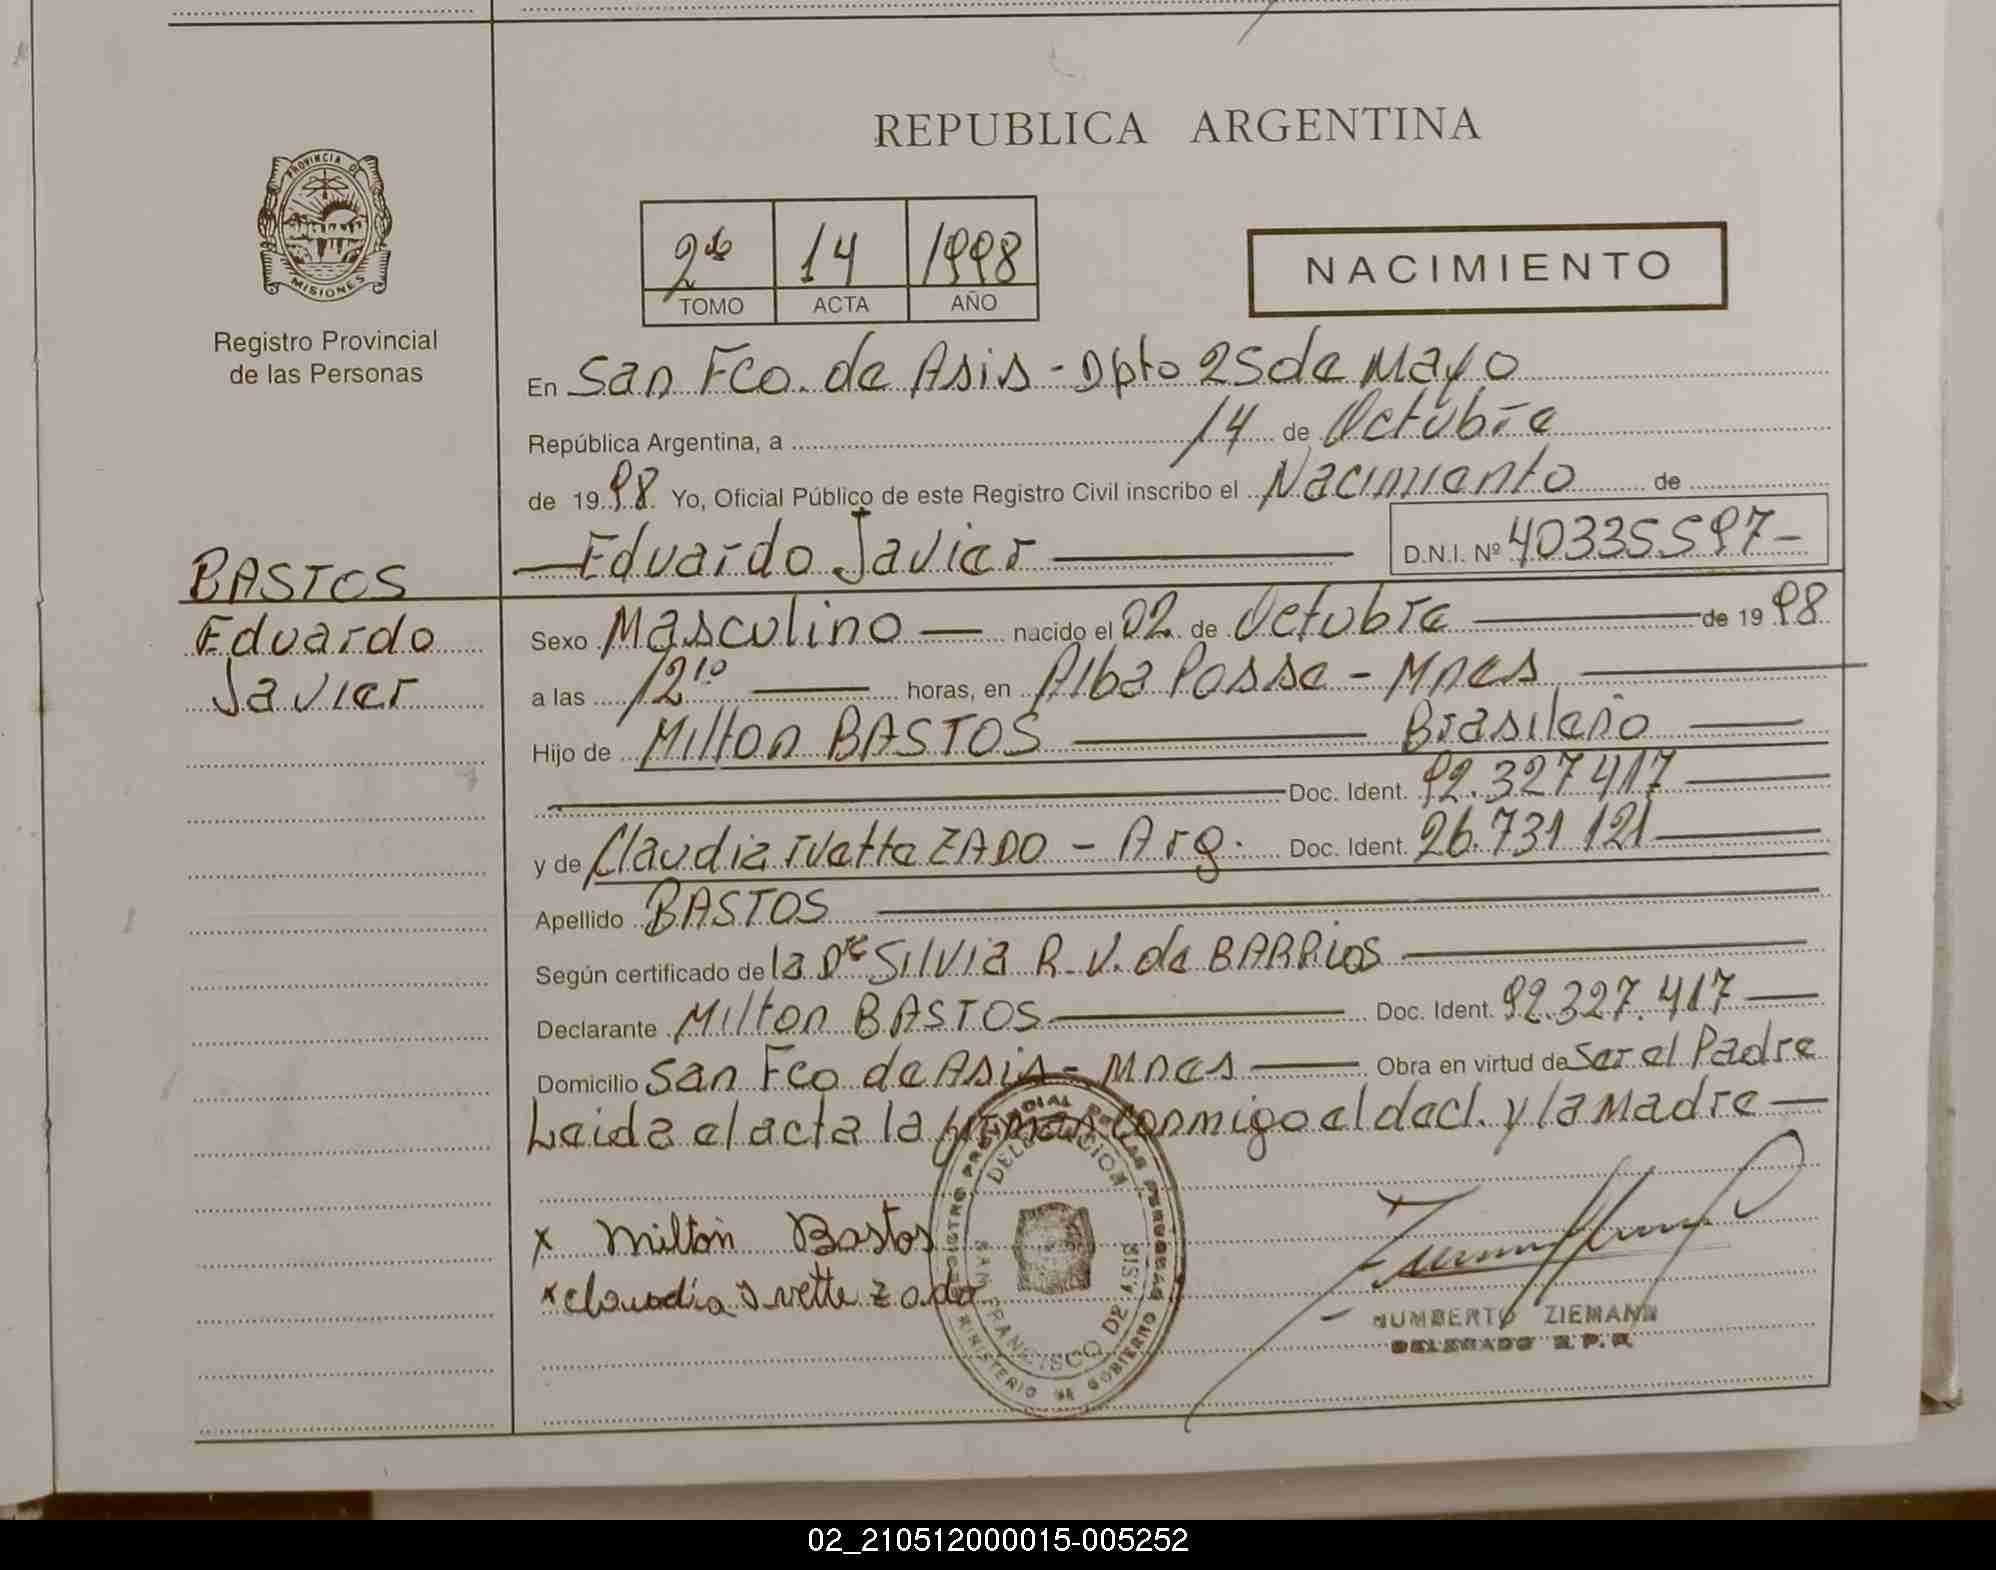 REPUBLICA ARGENTINA
PROVINCIA DE
MISIONES
Registro Provincial
de las Personas
2do 14 1998
TOMO ACTA AÑO
NACIMIENTO
En San Fco. de Asis - Dpto 25 de Mayo
República Argentina, a 14 de Octubre
de 1998 Yo, Oficial Público de este Registro Civil inscribo el Nacimiento de
Eduardo Javier D.N.I. Nº 40335597-
BASTOS
Eduardo
Javier
Sexo Masculino nacido el 02 de Octubre de 1998
a las 12:10 horas, en Alba Posse - Mnes
Hijo de Milton BASTOS Brasileño
Doc. Ident. 92.327417
y de Claudia Ivette ZADO - Arg. Doc. Ident. 26.731 121
Apellido BASTOS
Según certificado de la Dra SILVIA R. V. de BARRIOS
Declarante Milton BASTOS Doc. Ident. 92.327.417
Domicilio San Fco de Asis - Mnes Obra en virtud de ser el Padre
Leida el acta la firman conmigo el decl. y la Madre
x Milton Bastos
x Claudia Ivette Zado
REGISTRO PROVINCIAL DE LAS PERSONAS
DELEGACION
SAN FRANCISCO DE ASIS
MINISTERIO DE GOBIERNO
HUMBERTO ZIEMANN
DELEGADO R.P.P.
02_210512000015-005252